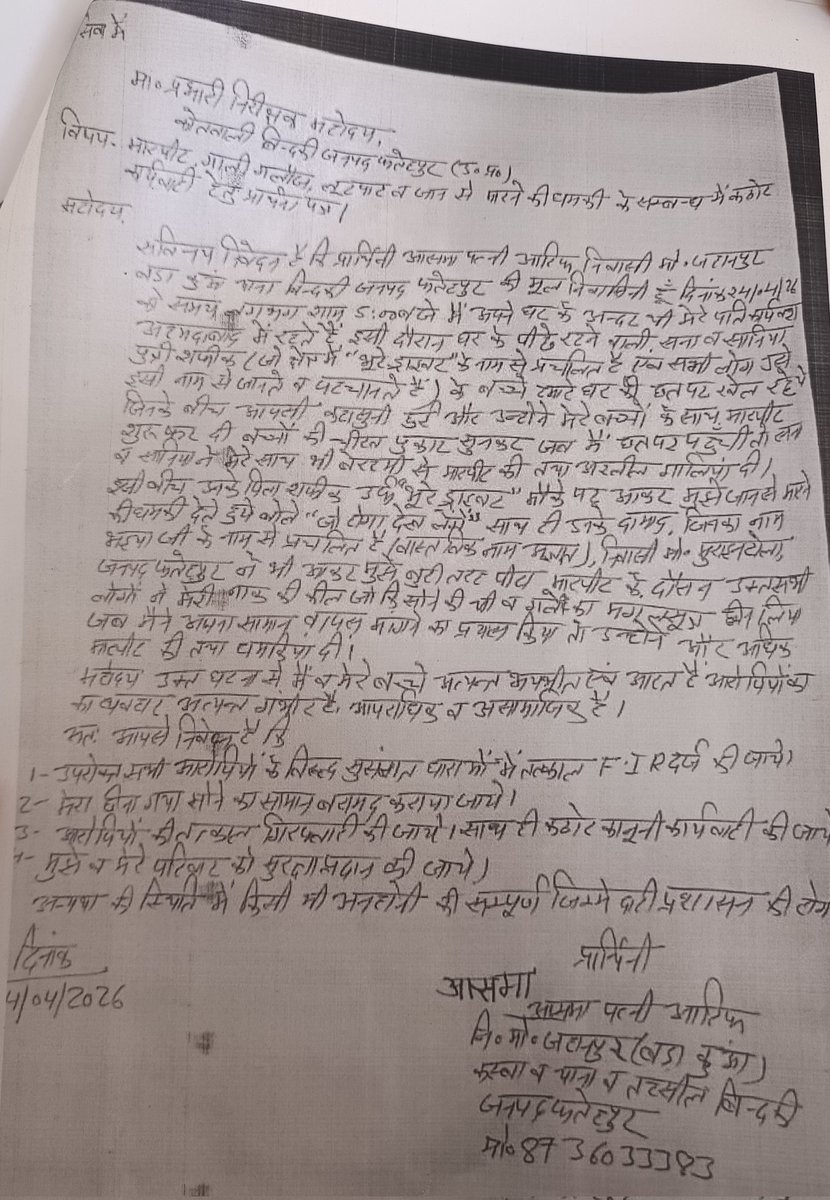 सेवा में
मा० प्रभारी निरीक्षक महोदय,
कोतवाली बिन्दकी जनपद फतेहपुर (उ० प्र०)
विषय- मारपीट, गाली गलौज, लूटपाट व जान से मारने की धमकी के सम्बन्ध में कठोर
कार्यवाही हेतु प्रार्थना पत्र।
महोदय,
सविनय निवेदन है कि प्रार्थिनी आसमा पत्नी आतिफ निवासी मो० जहानपुर
बडा कुआं थाना बिन्दकी जनपद फतेहपुर की मूल निवासिनी हूँ दिनांक
को समय लगभग शाम 5:00 बजे मैं अपने घर के अन्दर थी मेरे पति
अहमदाबाद में रहते हैं इसी दौरान घर के पीछे रहने वाली सना व सानिया
पुत्री शफीक (जो क्षेत्र में "भूरे ड्राइवर" के नाम से प्रचलित है एवं सभी लोग उसे
इसी नाम से जानते व पहचानते है) के बच्चे हमारे घर की छत पर खेल रहे थे
जिनके बीच आपसी कहासुनी हुई और उन्होने मेरे बच्चों के साथ मारपीट
शुरू कर दी बच्चों की चीख पुकार सुनकर जब मैं छत पर पहुंची तो सना
व सानिया ने मेरे साथ भी बेरहमी से मारपीट की तथा अश्लील गालियां दी।
इसी बीच उनके पिता शफीक उर्फ "भूरे ड्राइवर" मौके पर आकर मुझे जान से मारने
की धमकी देते हुये बोले "जो होगा देख लेंगे" साथ ही उनके दामाद, जिनका नाम
भइया जी के नाम से प्रचलित है (वास्तविक नाम), निवासी मो०
जनपद फतेहपुर ने भी आकर मुझे बुरी तरह पीटा मारपीट के दौरान उक्त सभी
लोगों ने मेरी नाक की कील जो कि सोने की थी व गले का मंगलसूत्र छीन लिया
जब मैने अपना सामान वापस मांगने का प्रयास किया तो उन्होंने और अधिक
मारपीट की तथा धमकियां दी।
महोदय उक्त घटना से मैं व मेरे बच्चे अत्यन्त भयभीत एवं आहत है आरोपियों का
का व्यवहार अत्यन्त गंभीर है, आपराधिक व असामाजिक है।
अतः आपसे निवेदन है कि
1- उपरोक्त सभी आरोपियों के विरूद्ध सुसंगत धाराओं में तत्काल F.I.R दर्ज की जाये।
2- मेरा छीना गया सोने का सामान बरामद कराया जाये।
3- आरोपियों की तत्काल गिरफ्तारी की जाये। साथ ही कठोर कानूनी कार्यवाही की जाये
4- मुझे व मेरे परिवार को सुरक्षा प्रदान की जाये।
अन्यथा की स्थिति में किसी भी अनहोनी की सम्पूर्ण जिम्मेदारी प्रशासन की होगी
दिनांक
4/04/2026
प्रार्थिनी
आसमा
आसमा पत्नी आतिफ
नि० मो० जहानपुर (बडा कुआं)
कस्बा व थाना व तहसील बिन्दकी
जनपद फतेहपुर
मो० 8736033383